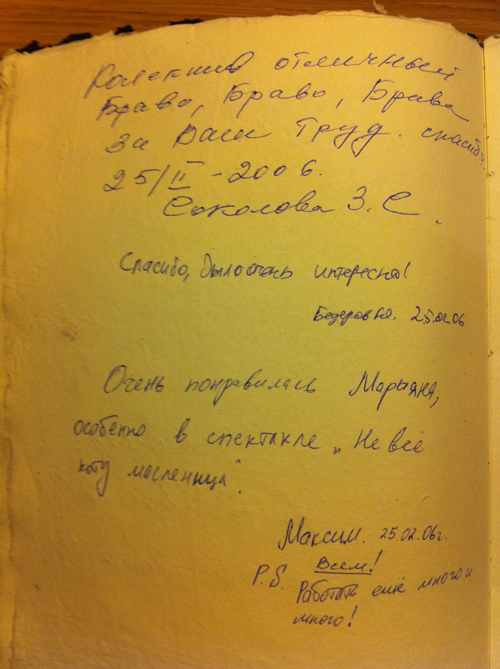 Колектив отличный
Браво, Браво, Браво
За Ваш Труд. спасибо
25/II - 2006.
Соколова З. С.
Спасибо, было очень интересно!
25.02.06
Очень понравилась Марьяна,
особенно в спектакле „Не всё
коту масленица".
Максим. 25.02.06г.
P.S. Всем!
Работать ещё много и
много!